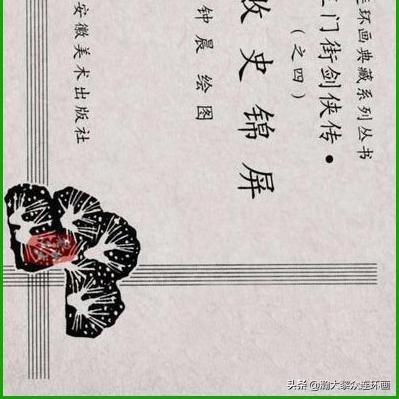 连环画典藏系列丛书
三门街剑侠传•
（之四）
收史锦屏
钟晨绘图
安徽美术出版社
头条 @瀚大黎众连环画